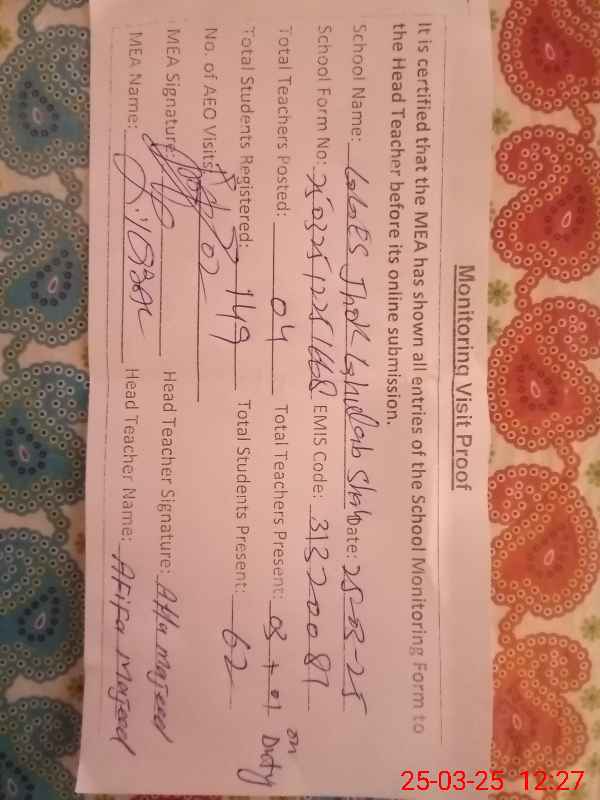 Monitoring Visit Proof
It is certified that the MEA has shown all entries of the School Monitoring Form to
the Head Teacher before its online submission.
School Name: GGES Jhok Ghulab Shah Date: 25-03-25
School Form No: EMIS Code: 31320081
Total Teachers Posted: 04 Total Teachers Present: 03 + 01 on Duty
Total Students Registered: 149 Total Students Present: 62
No. of AEO Visits: 02
MEA Signature: Head Teacher Signature: Atta majeed
MEA Name: Head Teacher Name: Afifa Majeed
25-03-25 12:27